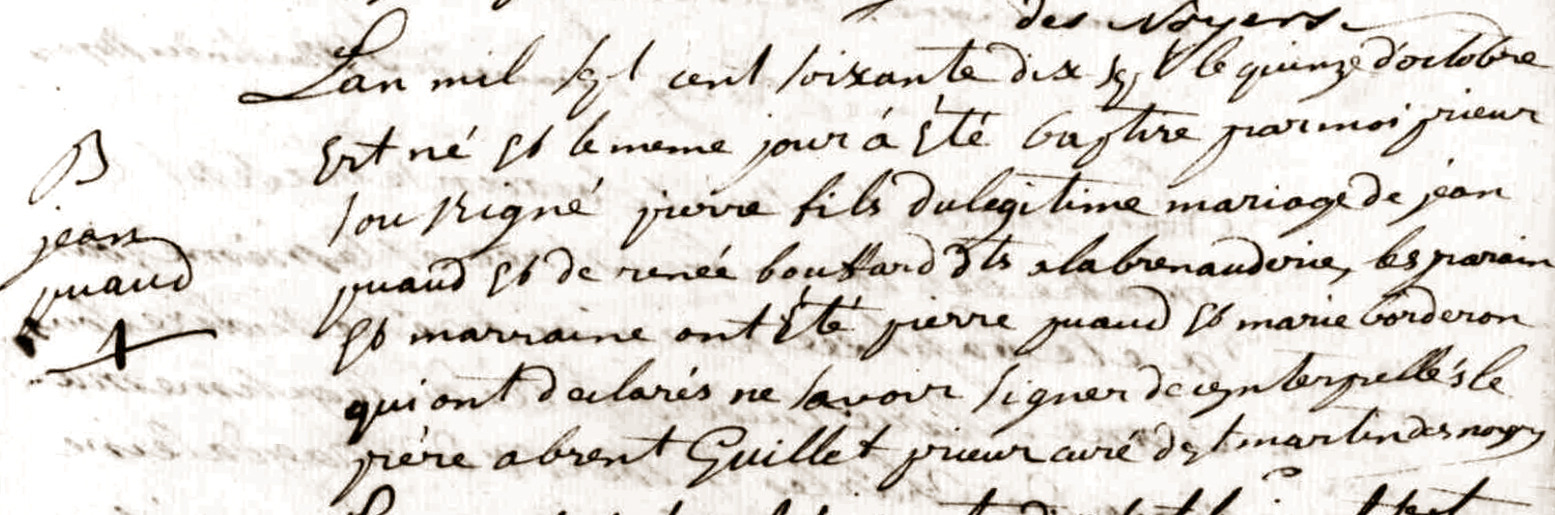 des Noyers
Lan mil sept cent soixante dix sept le quinze d'octobre
est né et le meme jour à été baptise par moi prieur
B
sousigné pierre fils du legitime mariage de jean
jean
puaud et de renée bouttard dts a la brenauderie, les parain
puaud
et marraine ont été pierre puaud et marie borderon
1
qui ont declarés ne savoir signer de ce interpellés le
pére absent Guillet prieur curé de st martin des noyers